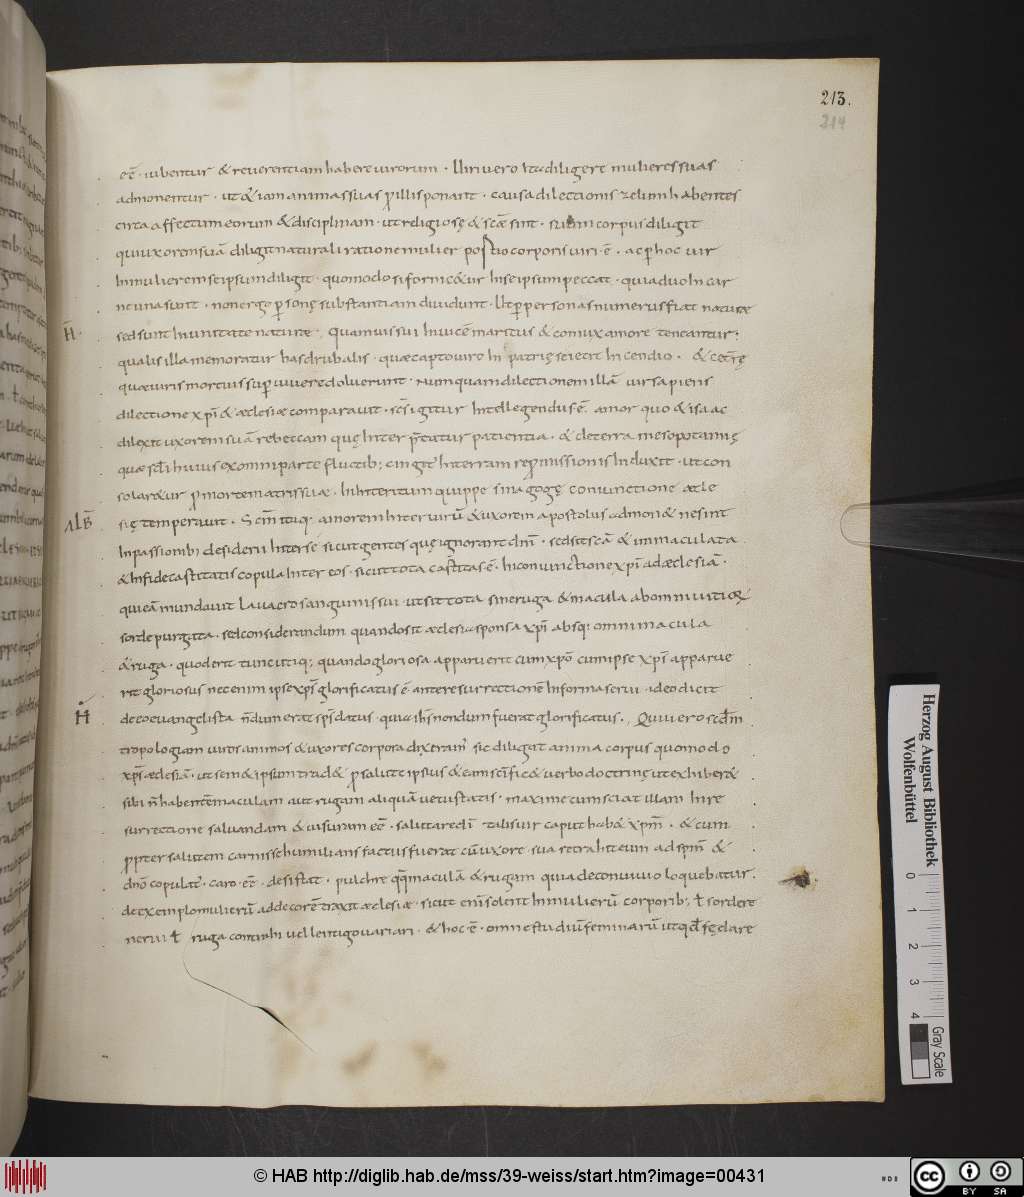 213.
214
eē · iubentur & reuerentiam habere uirorum · Uiri uero ita diligere mulieres suas
admonentur · ut & iam animas suas p illis ponant · causa dilectionis zelum habentes
circa affectum eorum & disciplinam · ut religiosę & scāe sint · suum corpus diligit
qui uxorem suā diligit naturali ratione mulier portio corporis uiri ē · ac p hoc uir
In muliere mse ipsum diligit · quomodo si fornicatur In se ipsum peccat · quia duo In car
ne una sunt · non ergo p sonę substantiam diuidunt · Ut per personas numerus fiat naturae
H̄ ·
sed sunt In unitate naturae · Quamuis sui Inuicē maritus & coniux amore teneantur ·
qualis illa memoratur hasdrubalis · quae capto uiro In patrię se iecit Incendio · & ceterę
quae uiris mortuis sup uiuere noluerunt · Numquam dilectionem illā uir sapiens
dilectione xpī & aeclesiae comparauit · scs̄ igitur Intellegendus ē amor quo & isaac
dilexit uxorem suā rebeccam quę Inter pretatur patientia · & de terra mesopotamię
quae scil̄ huius ex omni parte fluctib; cingit̄ In terram repromissionis Induxit · ut con
solaretur p morte matris suae · In Interitum quippe synagogę coniunctione aecle
ALB̄
się temperauit · Scm̄ itaq; amorem Inter uirū & uxorem apostolus admonet ne sint
In passionib; desiderii Inter se sicut gentes quę ignorant dm̄ · sed sit scā & immaculata
& In fide castitatis copula Inter eos · sicut tota castitas ē · In coniunctione xpī ad aeclesiā ·
qui eā mundauit lauacro sanguinis sui · ut sit tota sine ruga & macula ab omni uitiorum
sorde purgata · sed considerandum quando sit aeclesia sponsa xpī absq; omni macula
& ruga · quod erit tunc utiq; quando gloriosa apparuerit cum xpō cum ipse xpī apparue
rit gloriosus nec enim ipse xpī glorificatus ē ante resurrectionē In forma serui · ideo dicit
H̄
de eo euangelista n̄dum erat sp̄s datus · quia ih̄s nondum fuerat glorificatus · Qui uero scdm̄
tropologiam uiros animos & uxores corpora dixerant sic diligat anima corpus quomodo
xpī aeclesiā · ut semet ipsum tradat p salute ipsius & eam scīficet uerbo doctrinę ut exhibeat
sibi n̄ habentē maculam aut rugam aliquā uetustatis · maxime cum sciat illam In re
surrectione saluandam & uisuram eē · salutare dī talis uir caput habet xpm̄ · & cum
ppter salutem carnis se humilians factus fuerat cū uxore sua retrahit eum ad spm̄ &
dnō copulat̄ · caro eē · desistat · pulchre qq; maculā & rugam quia de conuiuio loquebatur ·
de exemplo mulierū ad decorē traxit aeclesiae · sicut enī solent In mulierū corporib; ł sordere
neruu ł ruga contrahi uel lentigo uariari · & hoc ē · omne studiū feminarū ut qd̄ fędare
Herzog August Bibliothek
Wolfenbüttel
0 1 2 3 4
Gray Scale
© HAB http://diglib.hab.de/mss/39-weiss/start.htm?image=00431
cc BY SA